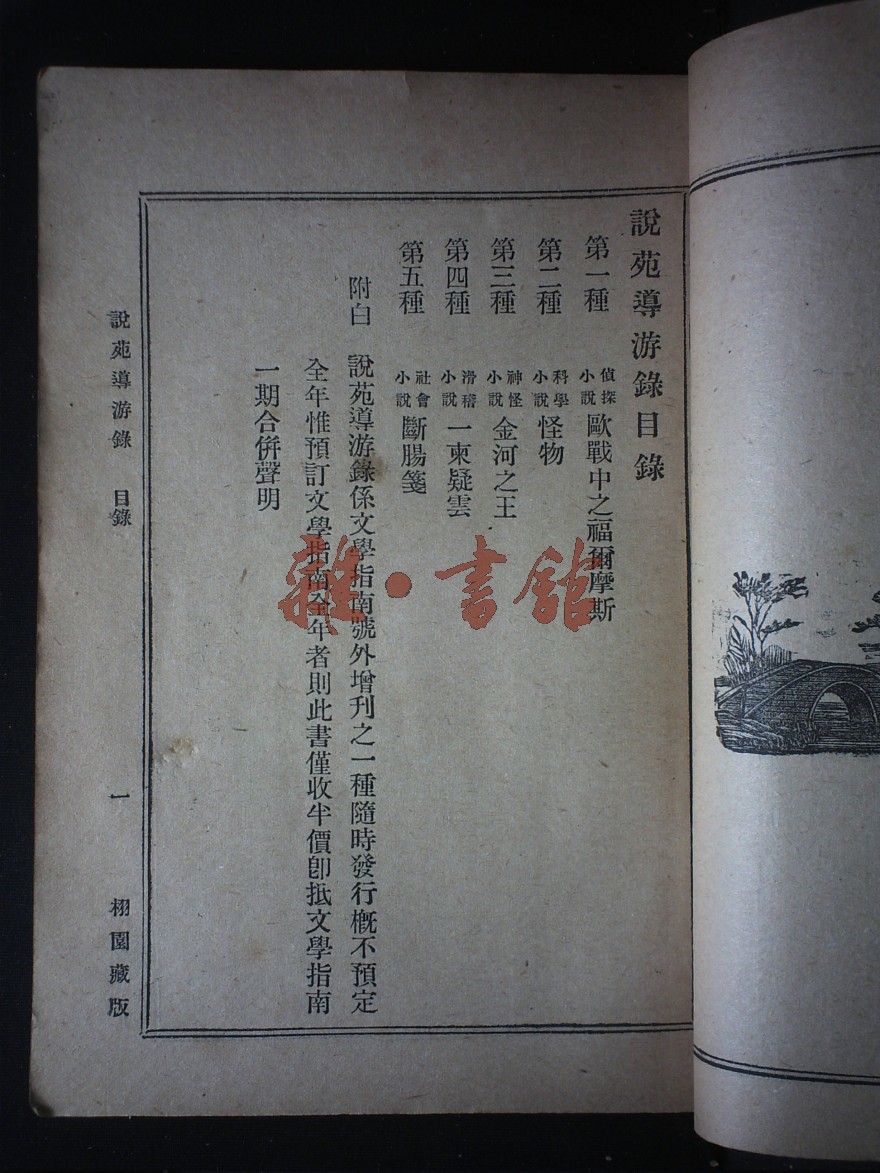 說苑導游錄目錄
第一種 偵探小說 歐戰中之福爾摩斯
第二種 科學小說 怪物
第三種 神怪小說 金河之王
第四種 滑稽小說 一柬疑雲
第五種 社會小說 斷腸箋
附白 說苑導游錄係文學指南號外增刊之一種隨時發行概不預定
全年惟預訂文學指南全年者則此書僅收半價卽抵文學指南
一期合倂聲明
說苑導游錄 目錄 一 栩園藏版
雜·書館